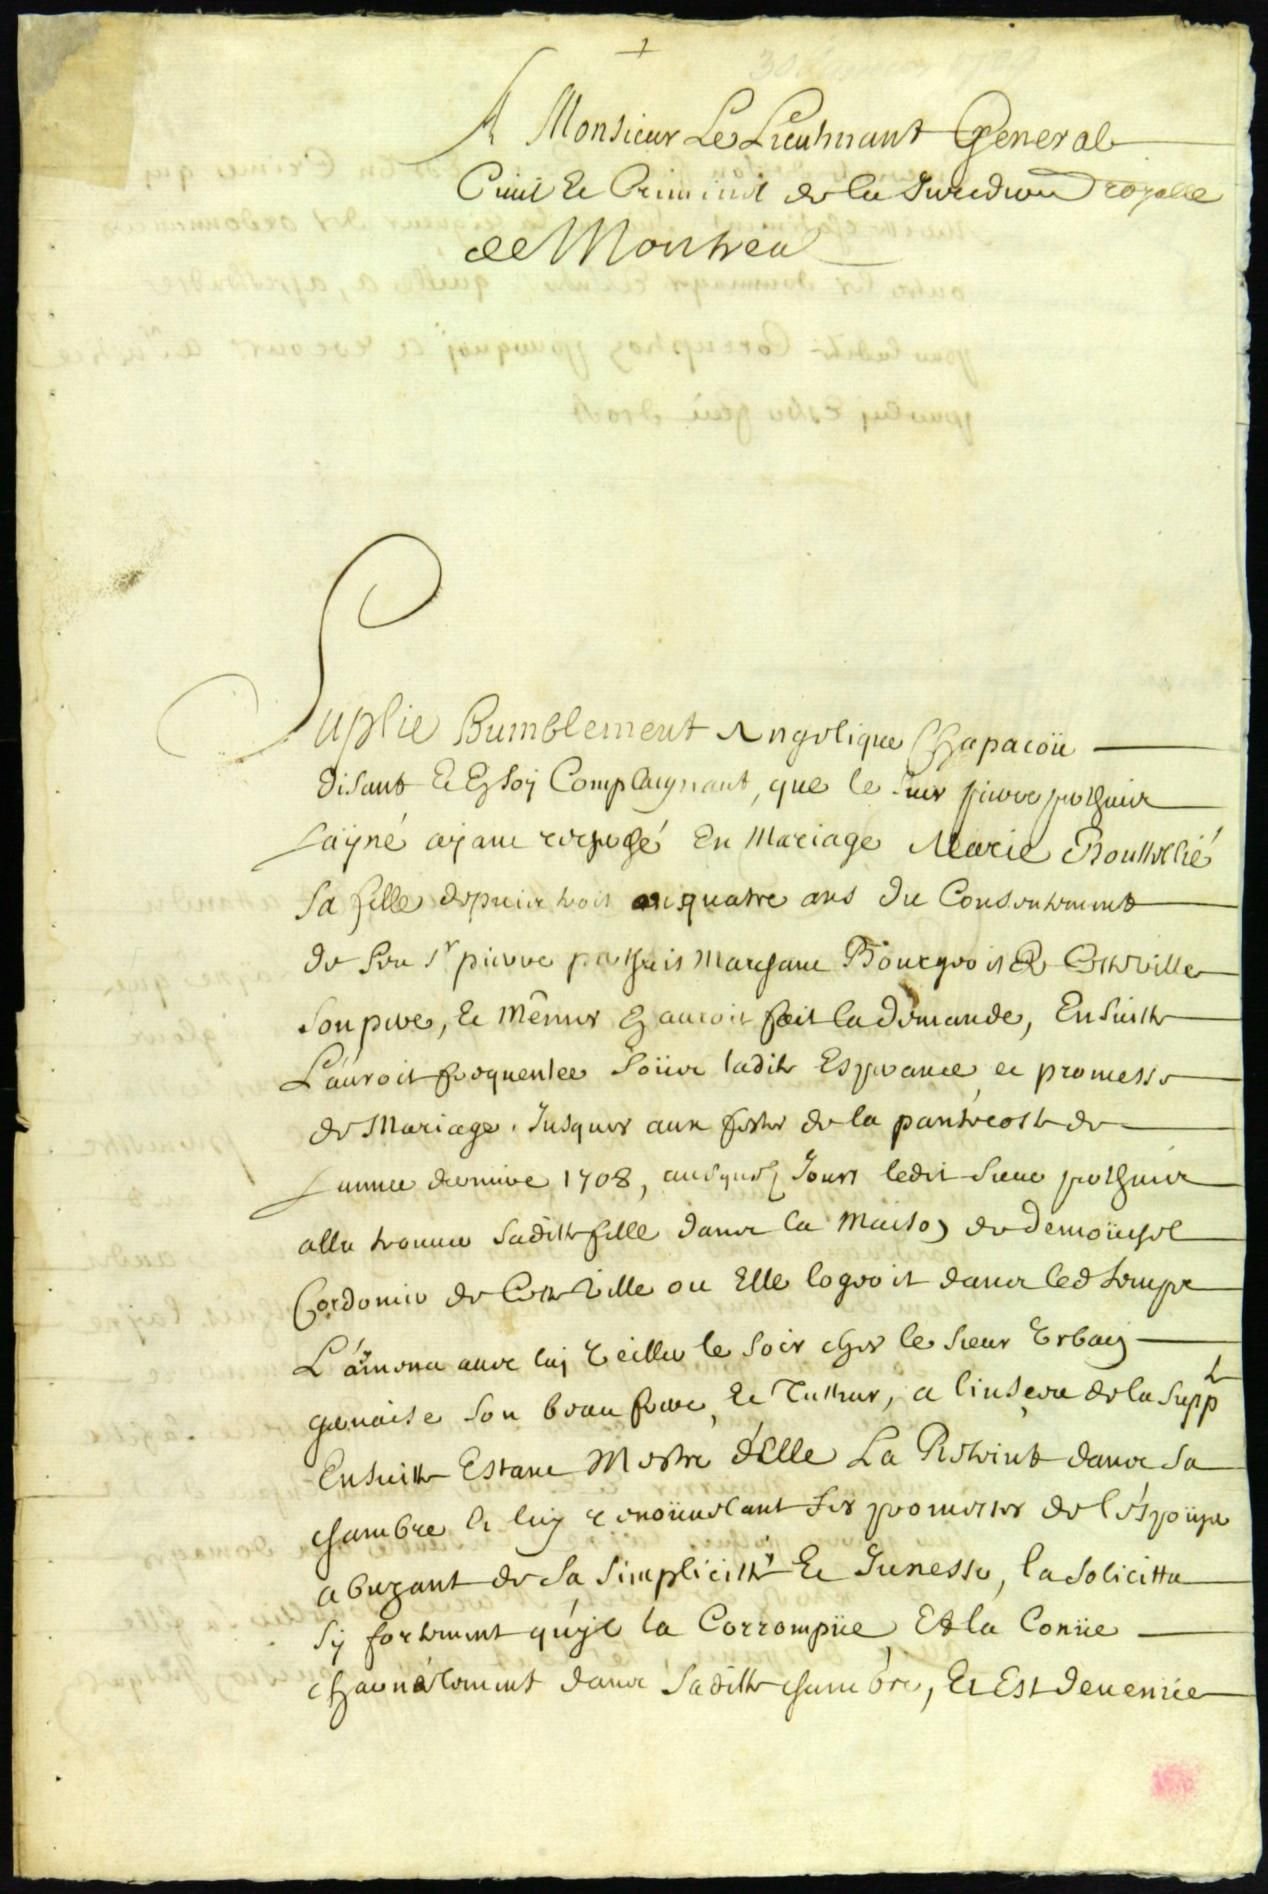 A Monsieur Le Lieutenant General
Ciuil Et Criminel de la Juridion royalle
de Montreal
Suplie humblement Angelique Chapacoü
disant Et En soy Complaignant, que le sieur pierre pothier
Layné ayant recherché En Mariage Marie Bouteillié
sa fille depuis trois ou quatre ans du Consentement
de feu sr pierre pothier Marchant Bourgeois de Cette ville
son pere, Et mêmes En auroit fait la demande, En suitte
L'auroit frequentee soüs ladite Esperance et promesse
de Mariage Jusques aux festes de la pantecoste de
Lannee derniere 1708, ausquels Jours ledit sieur pothier
alla trouuer saditte fille dans la Maison de
Cordonier de Cette Ville ou Elle logeoit dans led temps
L'ámena auec luy Veiller le soir ches le sieur Vrbain
geruaise son beau frere, Et Tutteur, a linsceu de la suppte
En suitte Estant Mestre d'Elle La Retoint dans sa
chambre Et luy renoüuelant ses promesses de l'éspouser
abuzant de sa simplicitté Et Junesse, la solicitta
sy fortement qu'yl la Corrompüe Et la Conüe
charnélement dans saditte chambre, Et Est deuenüe